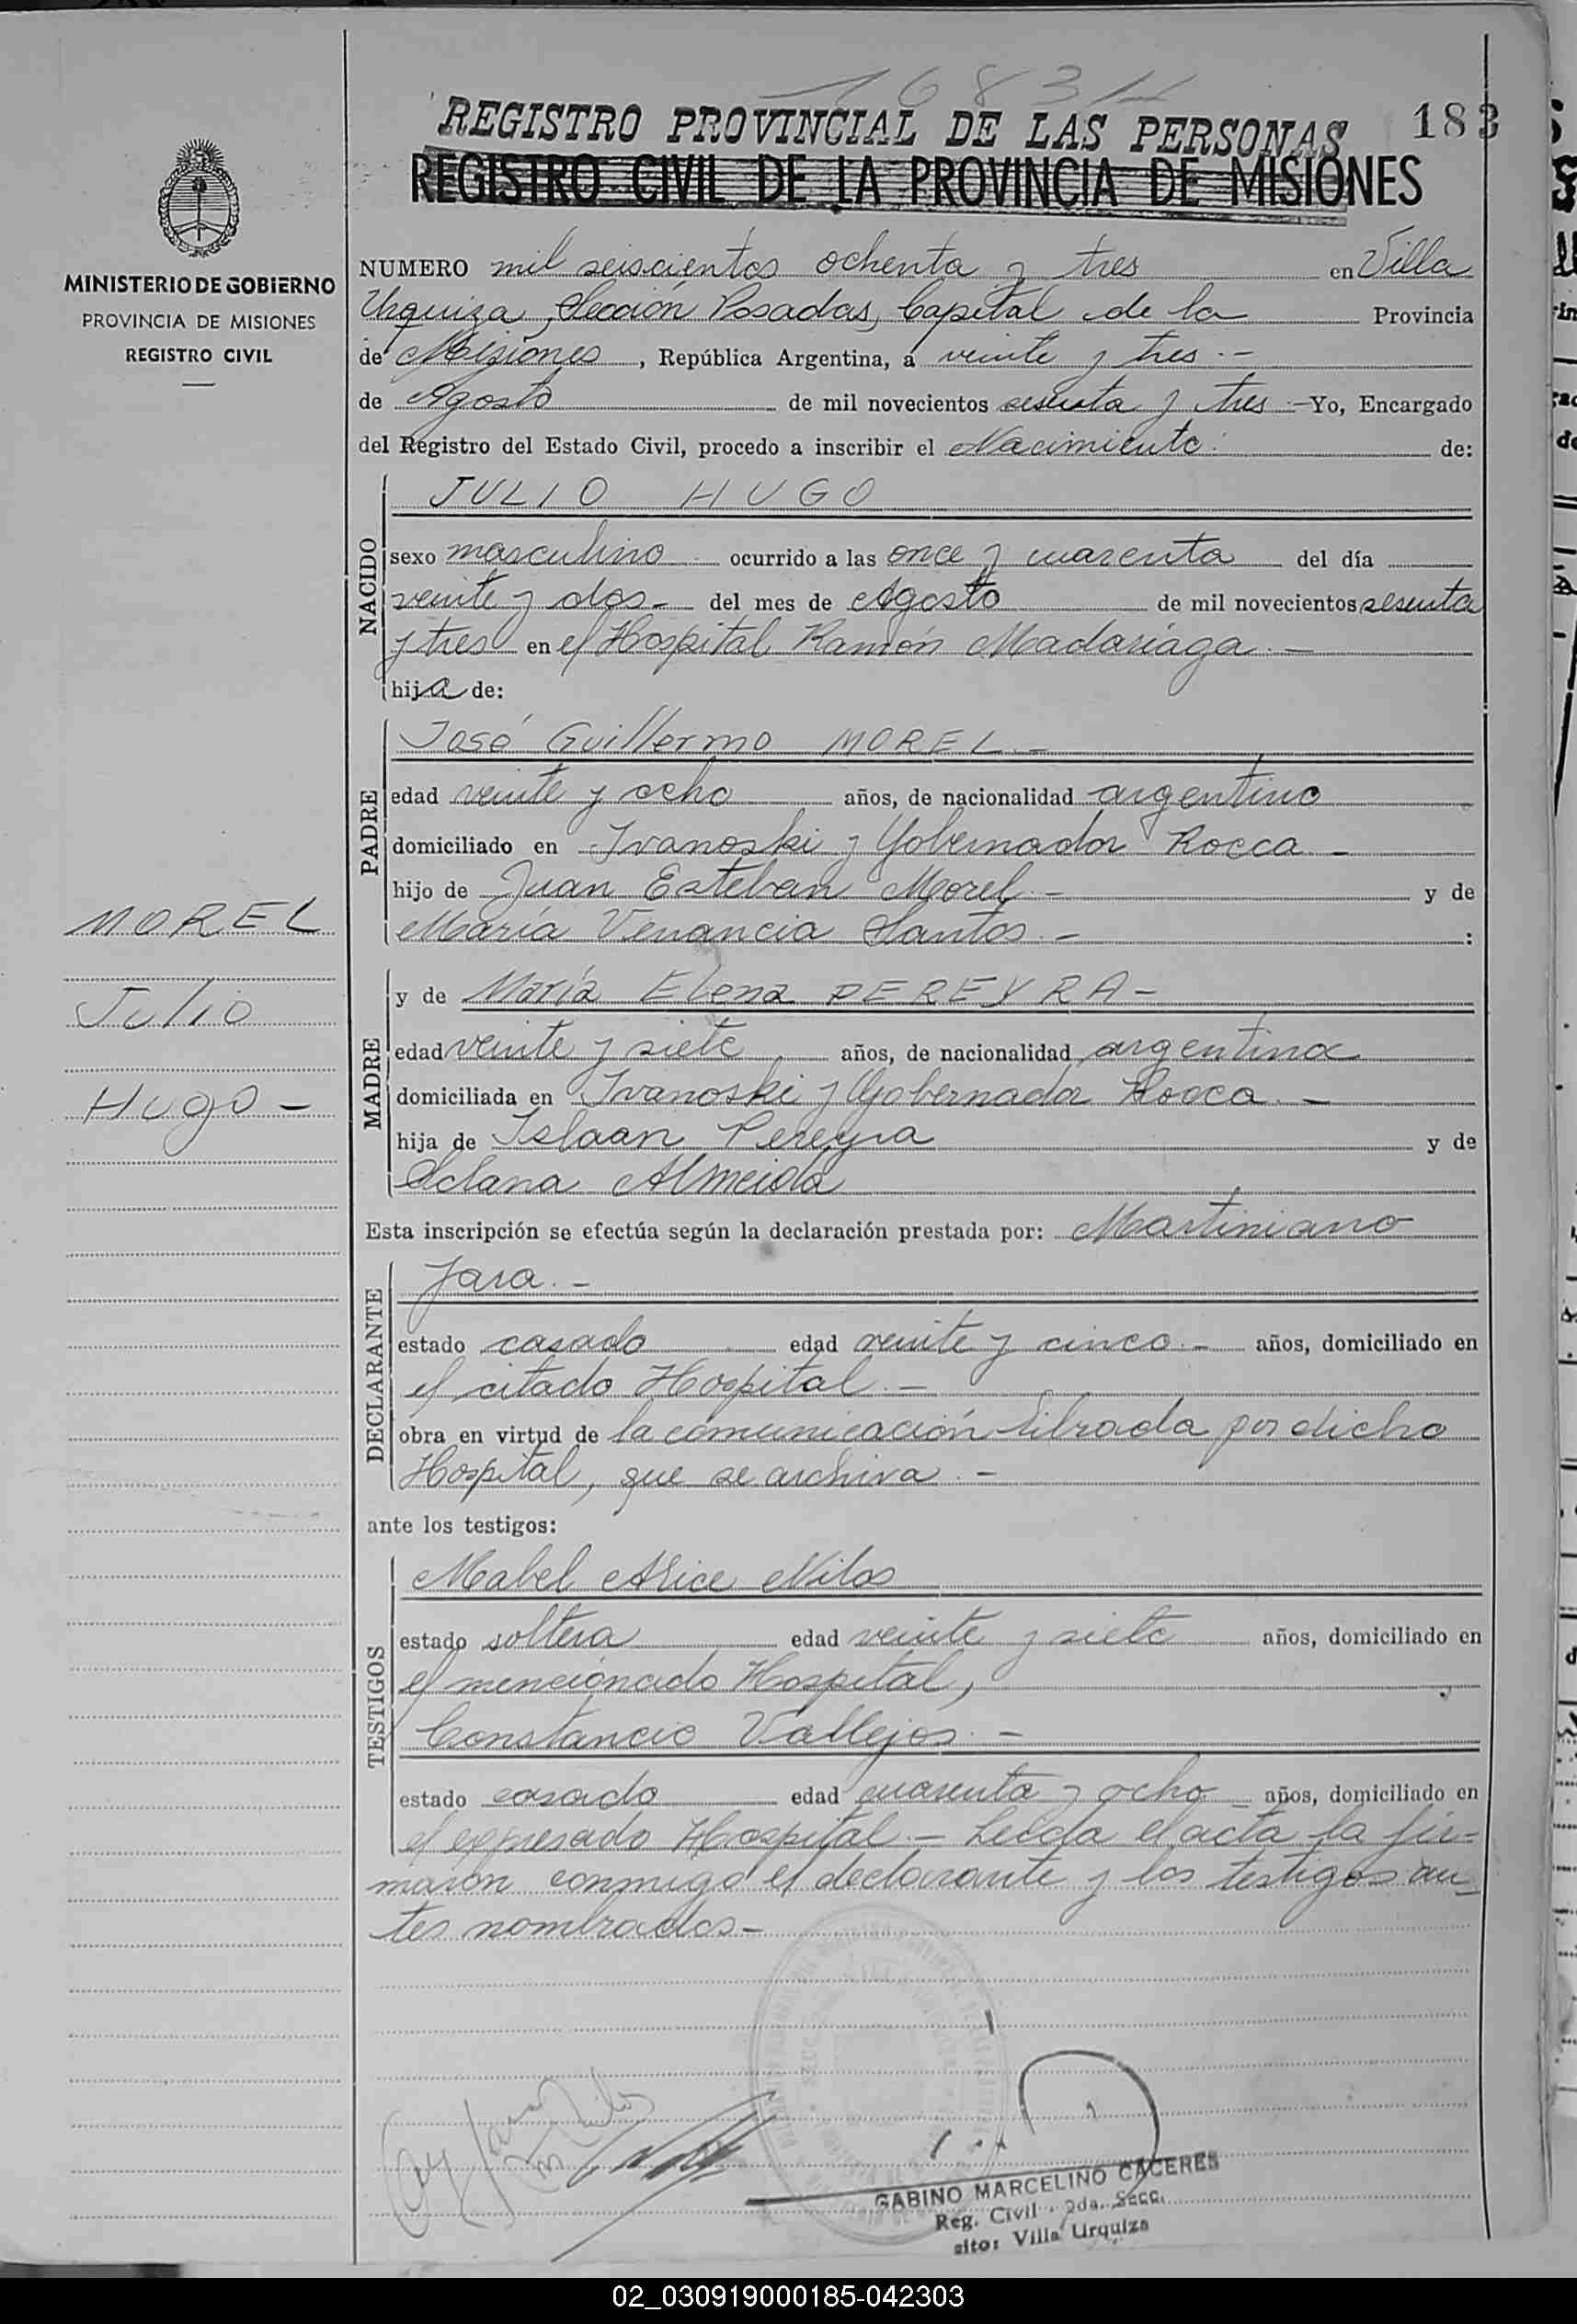 1683
183
REGISTRO PROVINCIAL DE LAS PERSONAS
REGISTRO CIVIL DE LA PROVINCIA DE MISIONES
MINISTERIO DE GOBIERNO
PROVINCIA DE MISIONES
REGISTRO CIVIL
NUMERO mil seiscientos ochenta y tres en Villa
Urquiza, Sección Posadas, Capital de la Provincia
de Misiones, República Argentina, a veinte y tres.-
de Agosto de mil novecientos sesenta y tres - Yo, Encargado
del Registro del Estado Civil, procedo a inscribir el Nacimiento: de:
NACIDO
JULIO HUGO
sexo masculino ocurrido a las once y cuarenta del día
veinte y dos.- del mes de Agosto de mil novecientos sesenta
y tres en el Hospital Ramón Madariaga.-
hija de:
PADRE
José Guillermo MOREL.-
edad veinte y ocho años, de nacionalidad argentino
domiciliado en Ivanoski y Gobernador Rocca.-
hijo de Juan Esteban Morel.- y de
María Venancia Santos.- :
MOREL
Julio
Hugo -
MADRE
y de María Elena PEREYRA -
edad veinte y siete años, de nacionalidad argentina
domiciliada en Ivanoski y Gobernador Rocca.-
hija de Islaan Pereyra y de
Almeida
Esta inscripción se efectúa según la declaración prestada por: Martiniano
DECLARANTE
Jara.-
estado casado edad veinte y cinco.- años, domiciliado en
el citado Hospital.-
obra en virtud de la comunicación librada por dicho
Hospital, que se archiva.-
ante los testigos:
TESTIGOS
Mabel Alice Nilos
estado soltera edad veinte y siete años, domiciliado en
el mencionado Hospital,
Constancio Vallejos.-
estado casado edad cuarenta y ocho años, domiciliado en
el expresado Hospital.- Leída el acta la fir-
maron conmigo el declarante y los testigos an-
tes nombrados-
GABINO MARCELINO CACERES
Reg. Civil 2da. Secc.
sito: Villa Urquiza
02_030919000185-042303